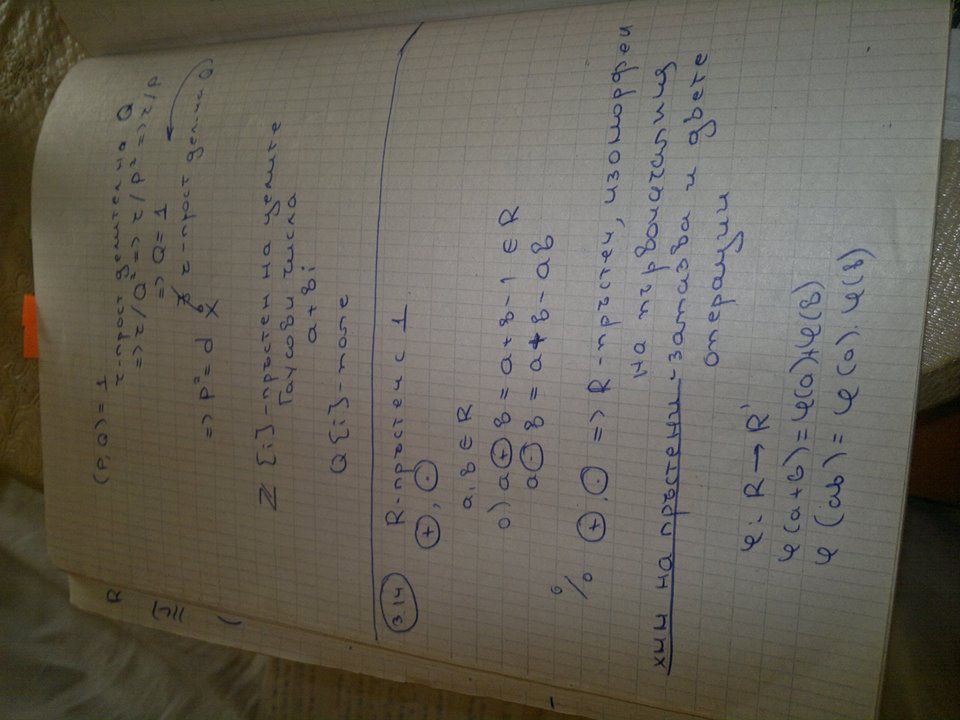 (p, Q) = 1
τ-прост делител на Q
=> τ/Q² => τ/p² => τ/p
=> Q = 1
=> p² = d
τ-прост делин Q)
Z [i]-пръстен на целите
Гаусови числа
a + bi
Q [i]-поле
3.14 R-пръстен с 1
⊕, ⊙
a, b ∈ R
0) a ⊕ b = a + b - 1 ∈ R
a ⊙ b = a + b - ab
% ⊕, ⊙ => R-пръстен, изоморфен
на първоначалния
хмм на пръстени-запазва и двете
операции
φ: R → R'
φ(a+b) = φ(a)+φ(b)
φ(ab) = φ(a).φ(b)